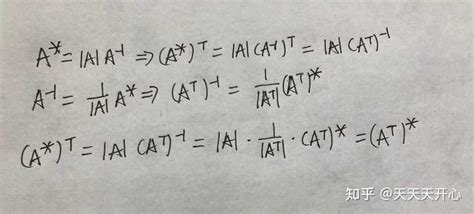 A* = |A| A⁻¹ ⇒ (A*)ᵀ = |A| (A⁻¹)ᵀ = |A| (Aᵀ)⁻¹
A⁻¹ = 1/|A| A* ⇒ (Aᵀ)⁻¹ = 1/|Aᵀ| (Aᵀ)*
(A*)ᵀ = |A| (Aᵀ)⁻¹ = |A| · 1/|Aᵀ| · (Aᵀ)* = (Aᵀ)*
知乎 @天天天开心